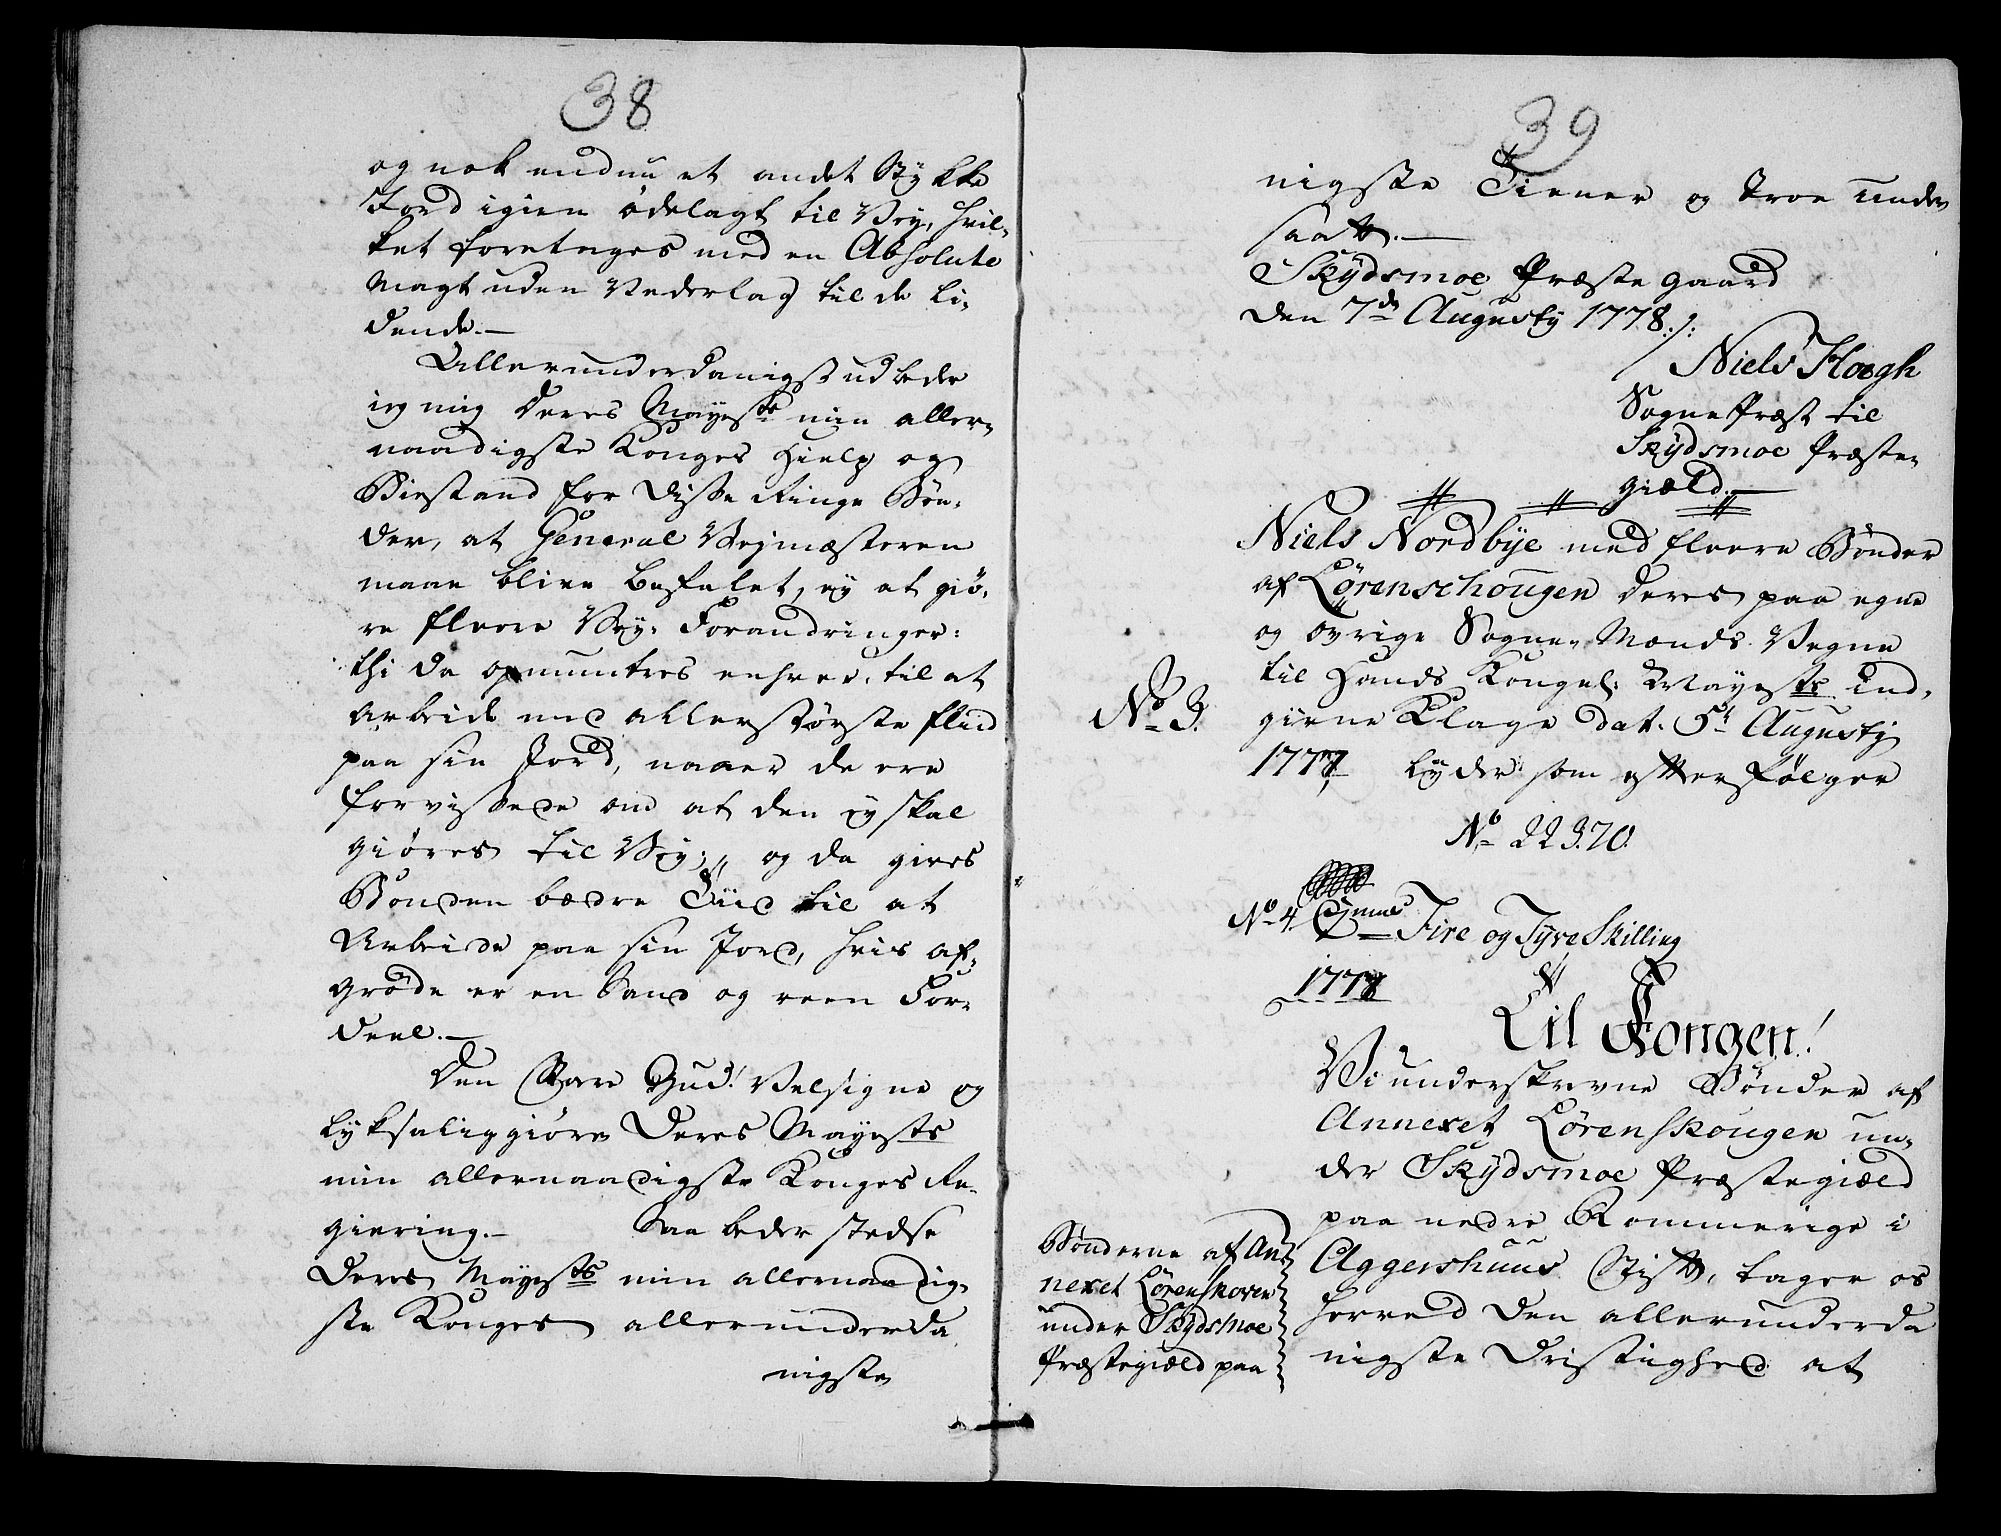 38
og nok endnu et andet Stykke
Jord igien ødelagt til Vey, hvil-
ket foretages med en Absolute
Magt uden Vederlag til de li-
dende.—
Allerunderdanigst udbeder
ieg mig Deres Mayestts min aller-
naadigste Konges Hielp og
Biestand for disse Ringe Bøn-
der, at General Vejmæsteren
maae blive befalet, ey at giø-
re fleere Vey-Forandringer:
thi da opmuntres enhver, til at
Arbeide med allerstørste fliid
paa sin Jord, naaer de ere
forvissede om at den ey skal
giøres til Vey; og da gives
Bonden bædre Tiid til at
Arbeide paa sin Jord, hvis af-
grøde er en Sand og reen For-
deel.—
Den Store Gud! Velsigne og
lyksaliggiøre Deres Mayestts
min allernaadigste Konges Re-
giering.— Saa beder stedse
Deres Mayestts min allernaadig-
ste Konges allerunderda
nigste
39
nigste Tiener og troe under
saatt.—
Skydsmoe Præstegaard
den 7de Augusty 1778./:
Niels Hoegh
Sogne Præst til
Skydsmoe Præste-
giæld.—
Niels Nordbye med fleere Bønder
af Lørenschougen deres paa egne
og øvrige Sogne-Mænds Vegne
til Hands Kongel: Mayestts ind-
No 3. givne Klage dat. 5t Augusty
1777 lyder som efterfølger
No 22370.
No 4 Fire og Tyve Skilling
1778
Til Kongen!
Vi underskrevne Bønder af
Annexet Lørenskougen un-
der Skydsmoe Præstegiæld
paa nedre Rommerige i
Aggershuus Stift, tager os
herved den allerunderda
nigste Dristighed at
Bønderne af An
nexet Lørenskoven
under Skydsmoe
Præstegiæld paa